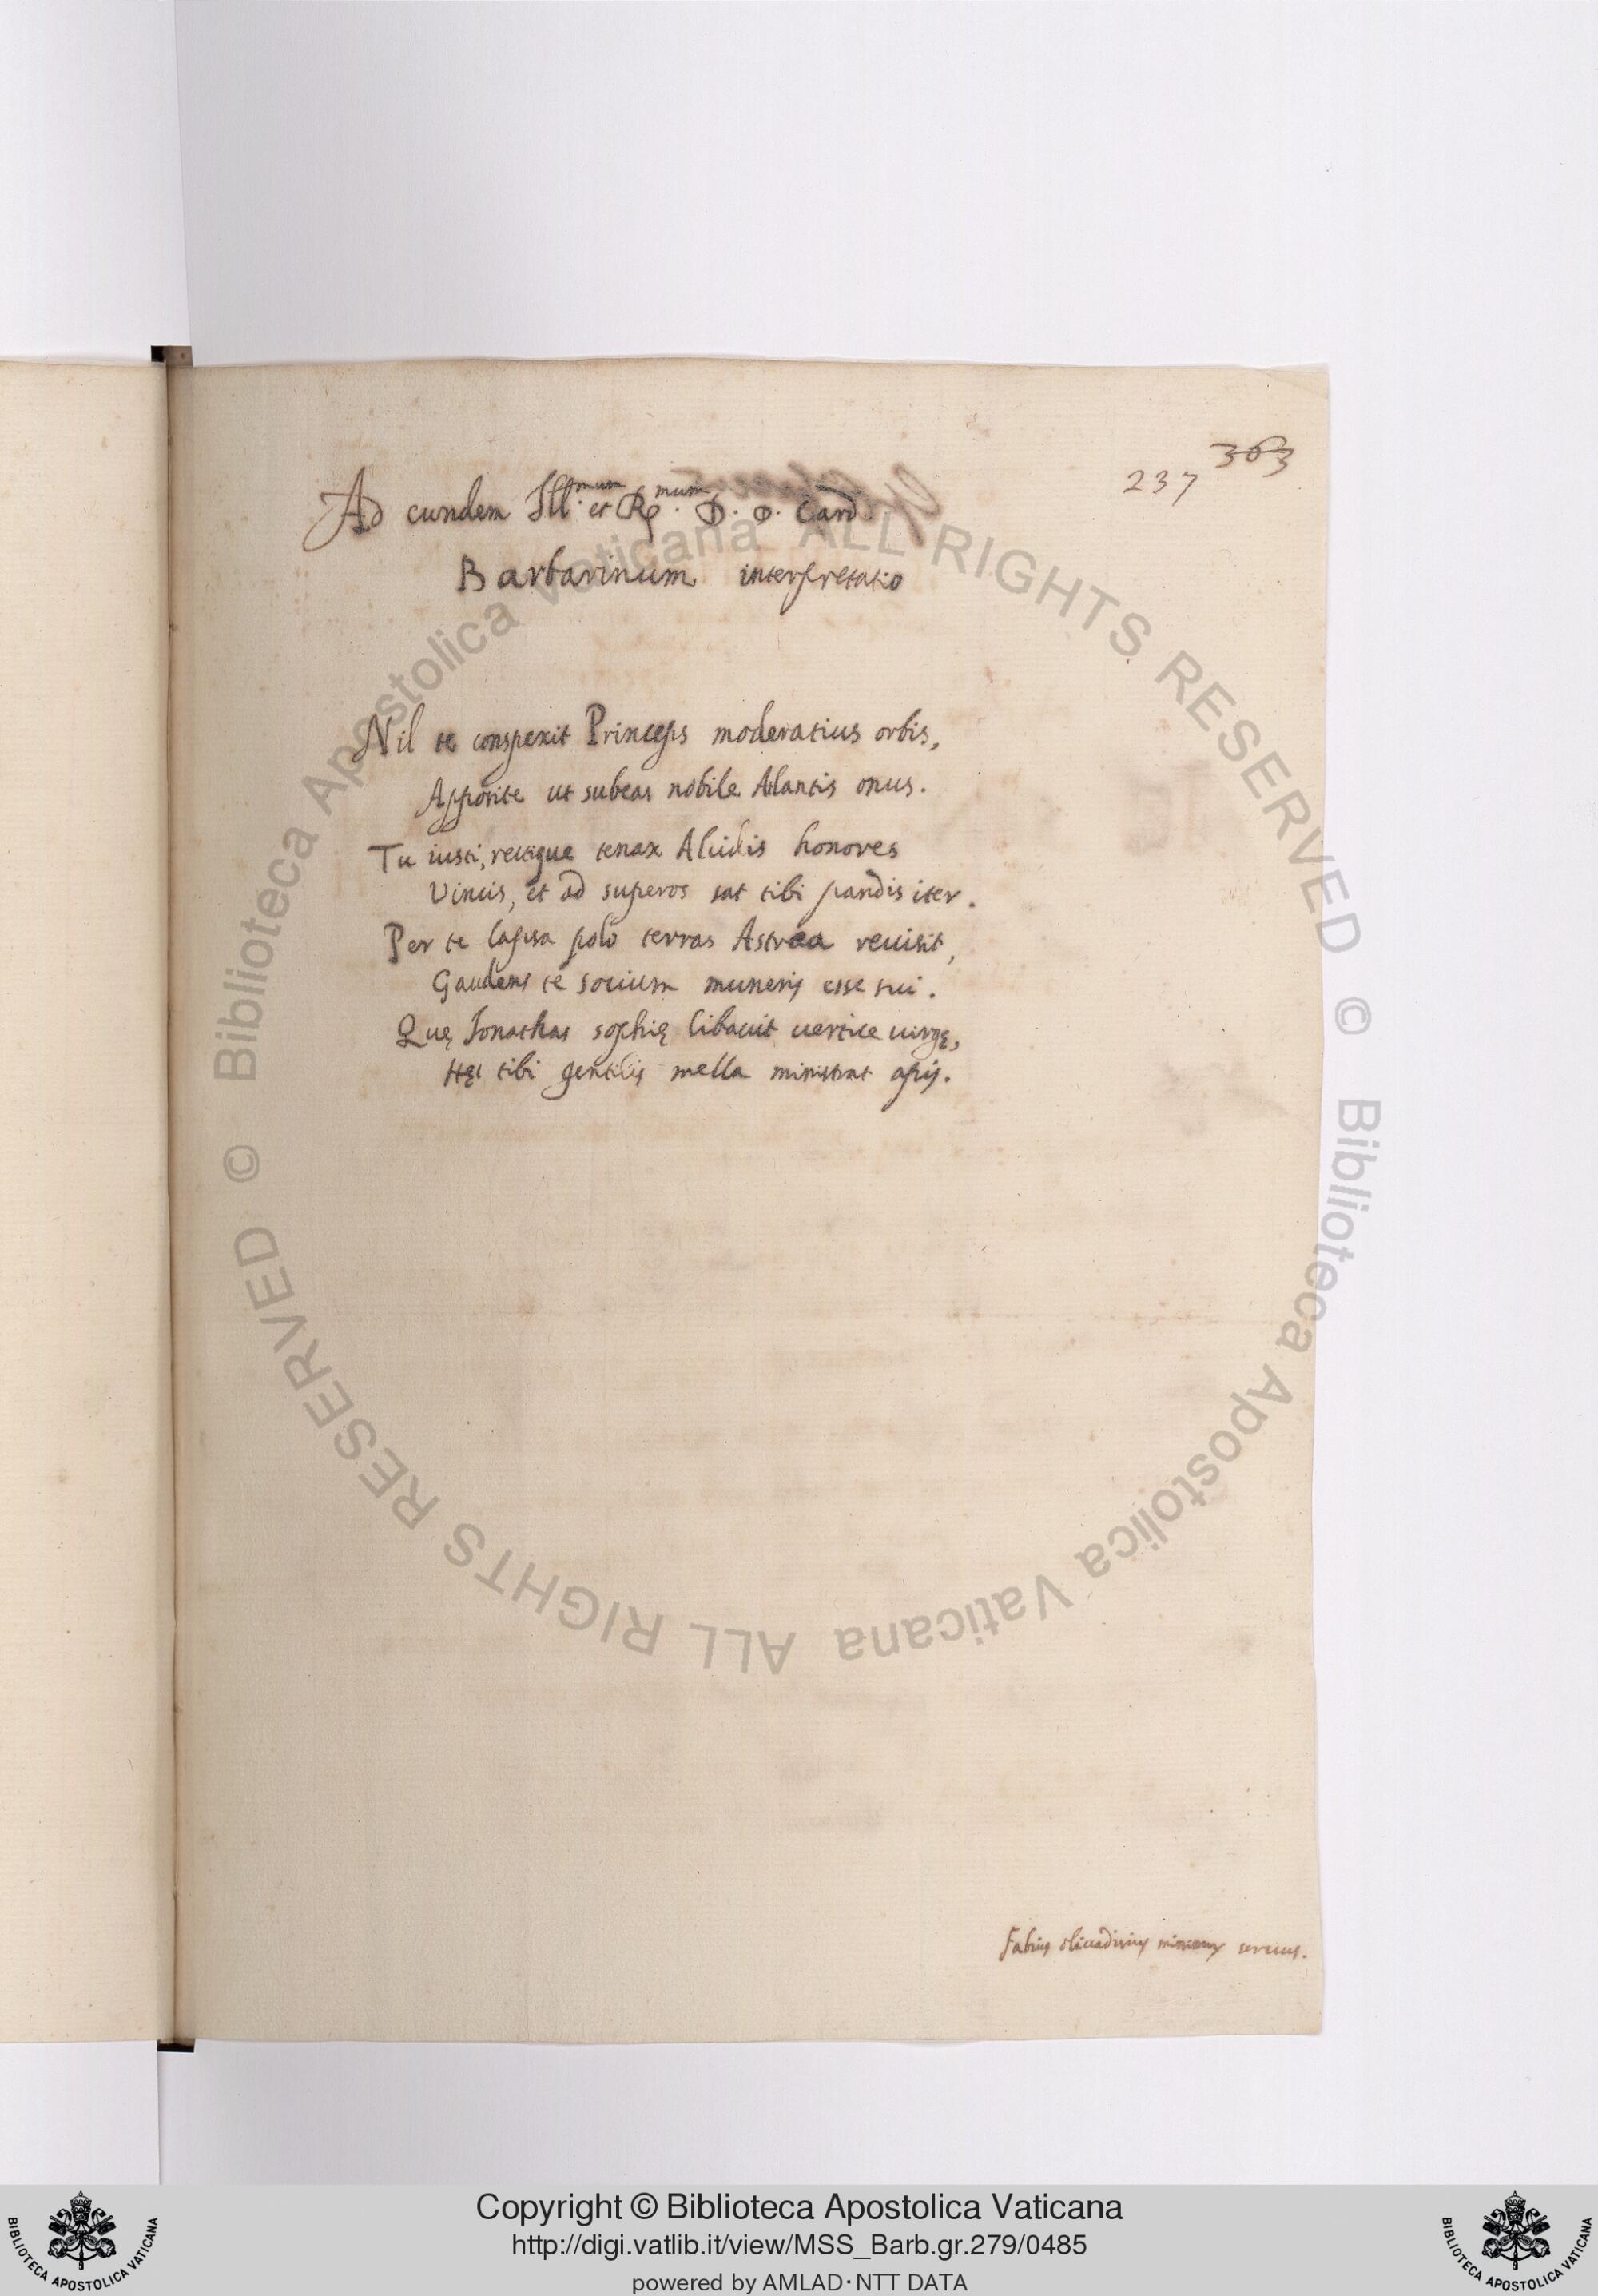 237 363
Ad eundem Ill.mum et R.mum D. D. Card.
Barbarinum interpretatio
Nil te conspexit Princeps moderatius orbis,
Apposite ut subeas nobile Atlantis onus.
Tu iusti, rectique tenax Alcidis honores
Vincis, et ad superos sat tibi pandis iter.
Per te lapsa polo terras Astrea reuisit,
Gaudens te socium muneris esse sui.
Quę Jonathas sophię libauit uertice uirgę,
Hęc tibi gentilis mella ministrat apis.
Fabius oliuadisius seruus.
© Biblioteca Apostolica Vaticana ALL RIGHTS RESERVED
© Biblioteca Apostolica Vaticana ALL RIGHTS RESERVED
Copyright © Biblioteca Apostolica Vaticana
http://digi.vatlib.it/view/MSS_Barb.gr.279/0485
powered by AMLAD·NTT DATA
BIBLIOTECA APOSTOLICA VATICANA
BIBLIOTECA APOSTOLICA VATICANA